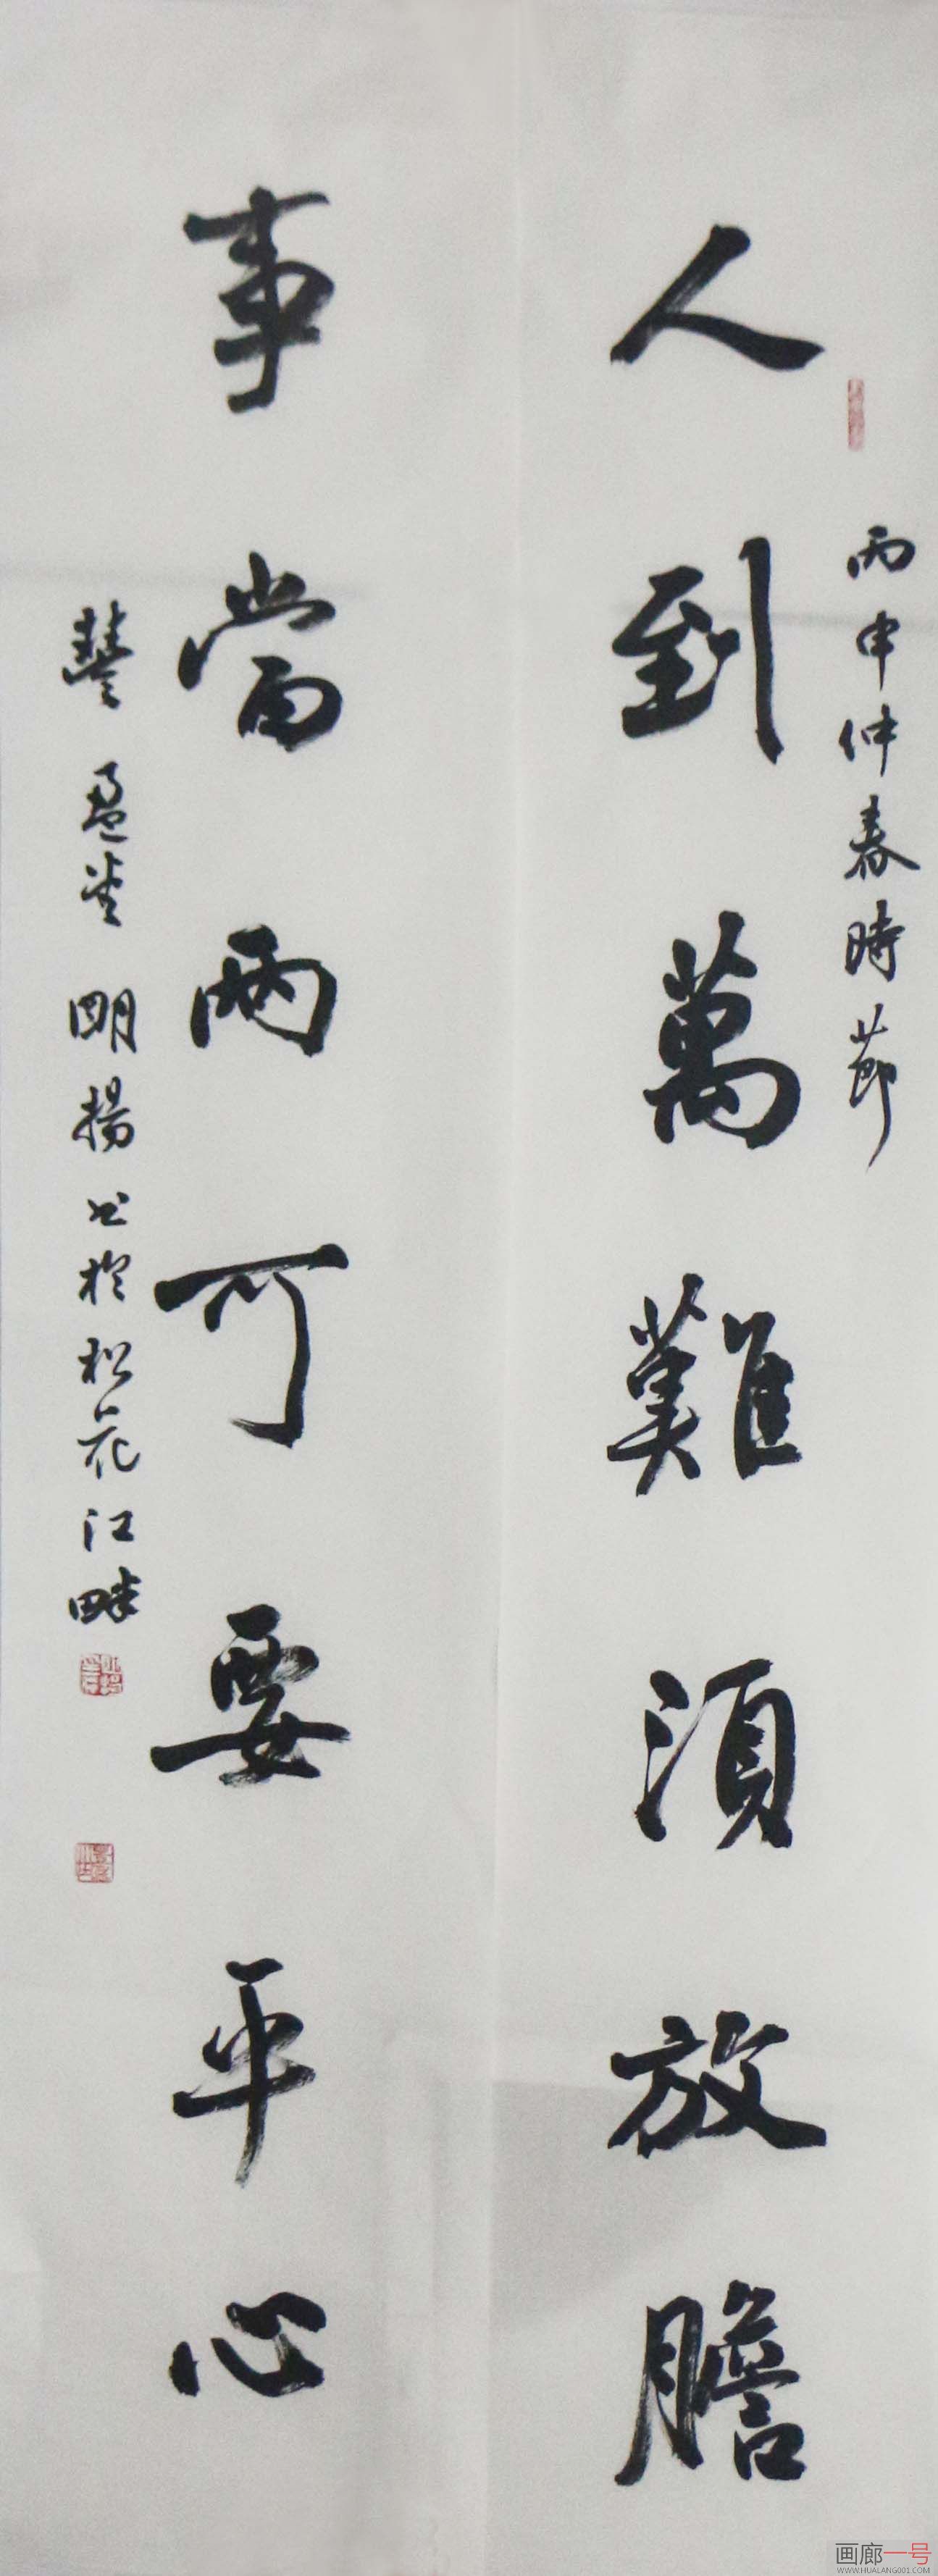 丙申仲春時節
人到萬難須放膽
事當兩可要平心
盈堂 明揚书於松花江畔
画廊一号
WWW.HUALANG001.COM